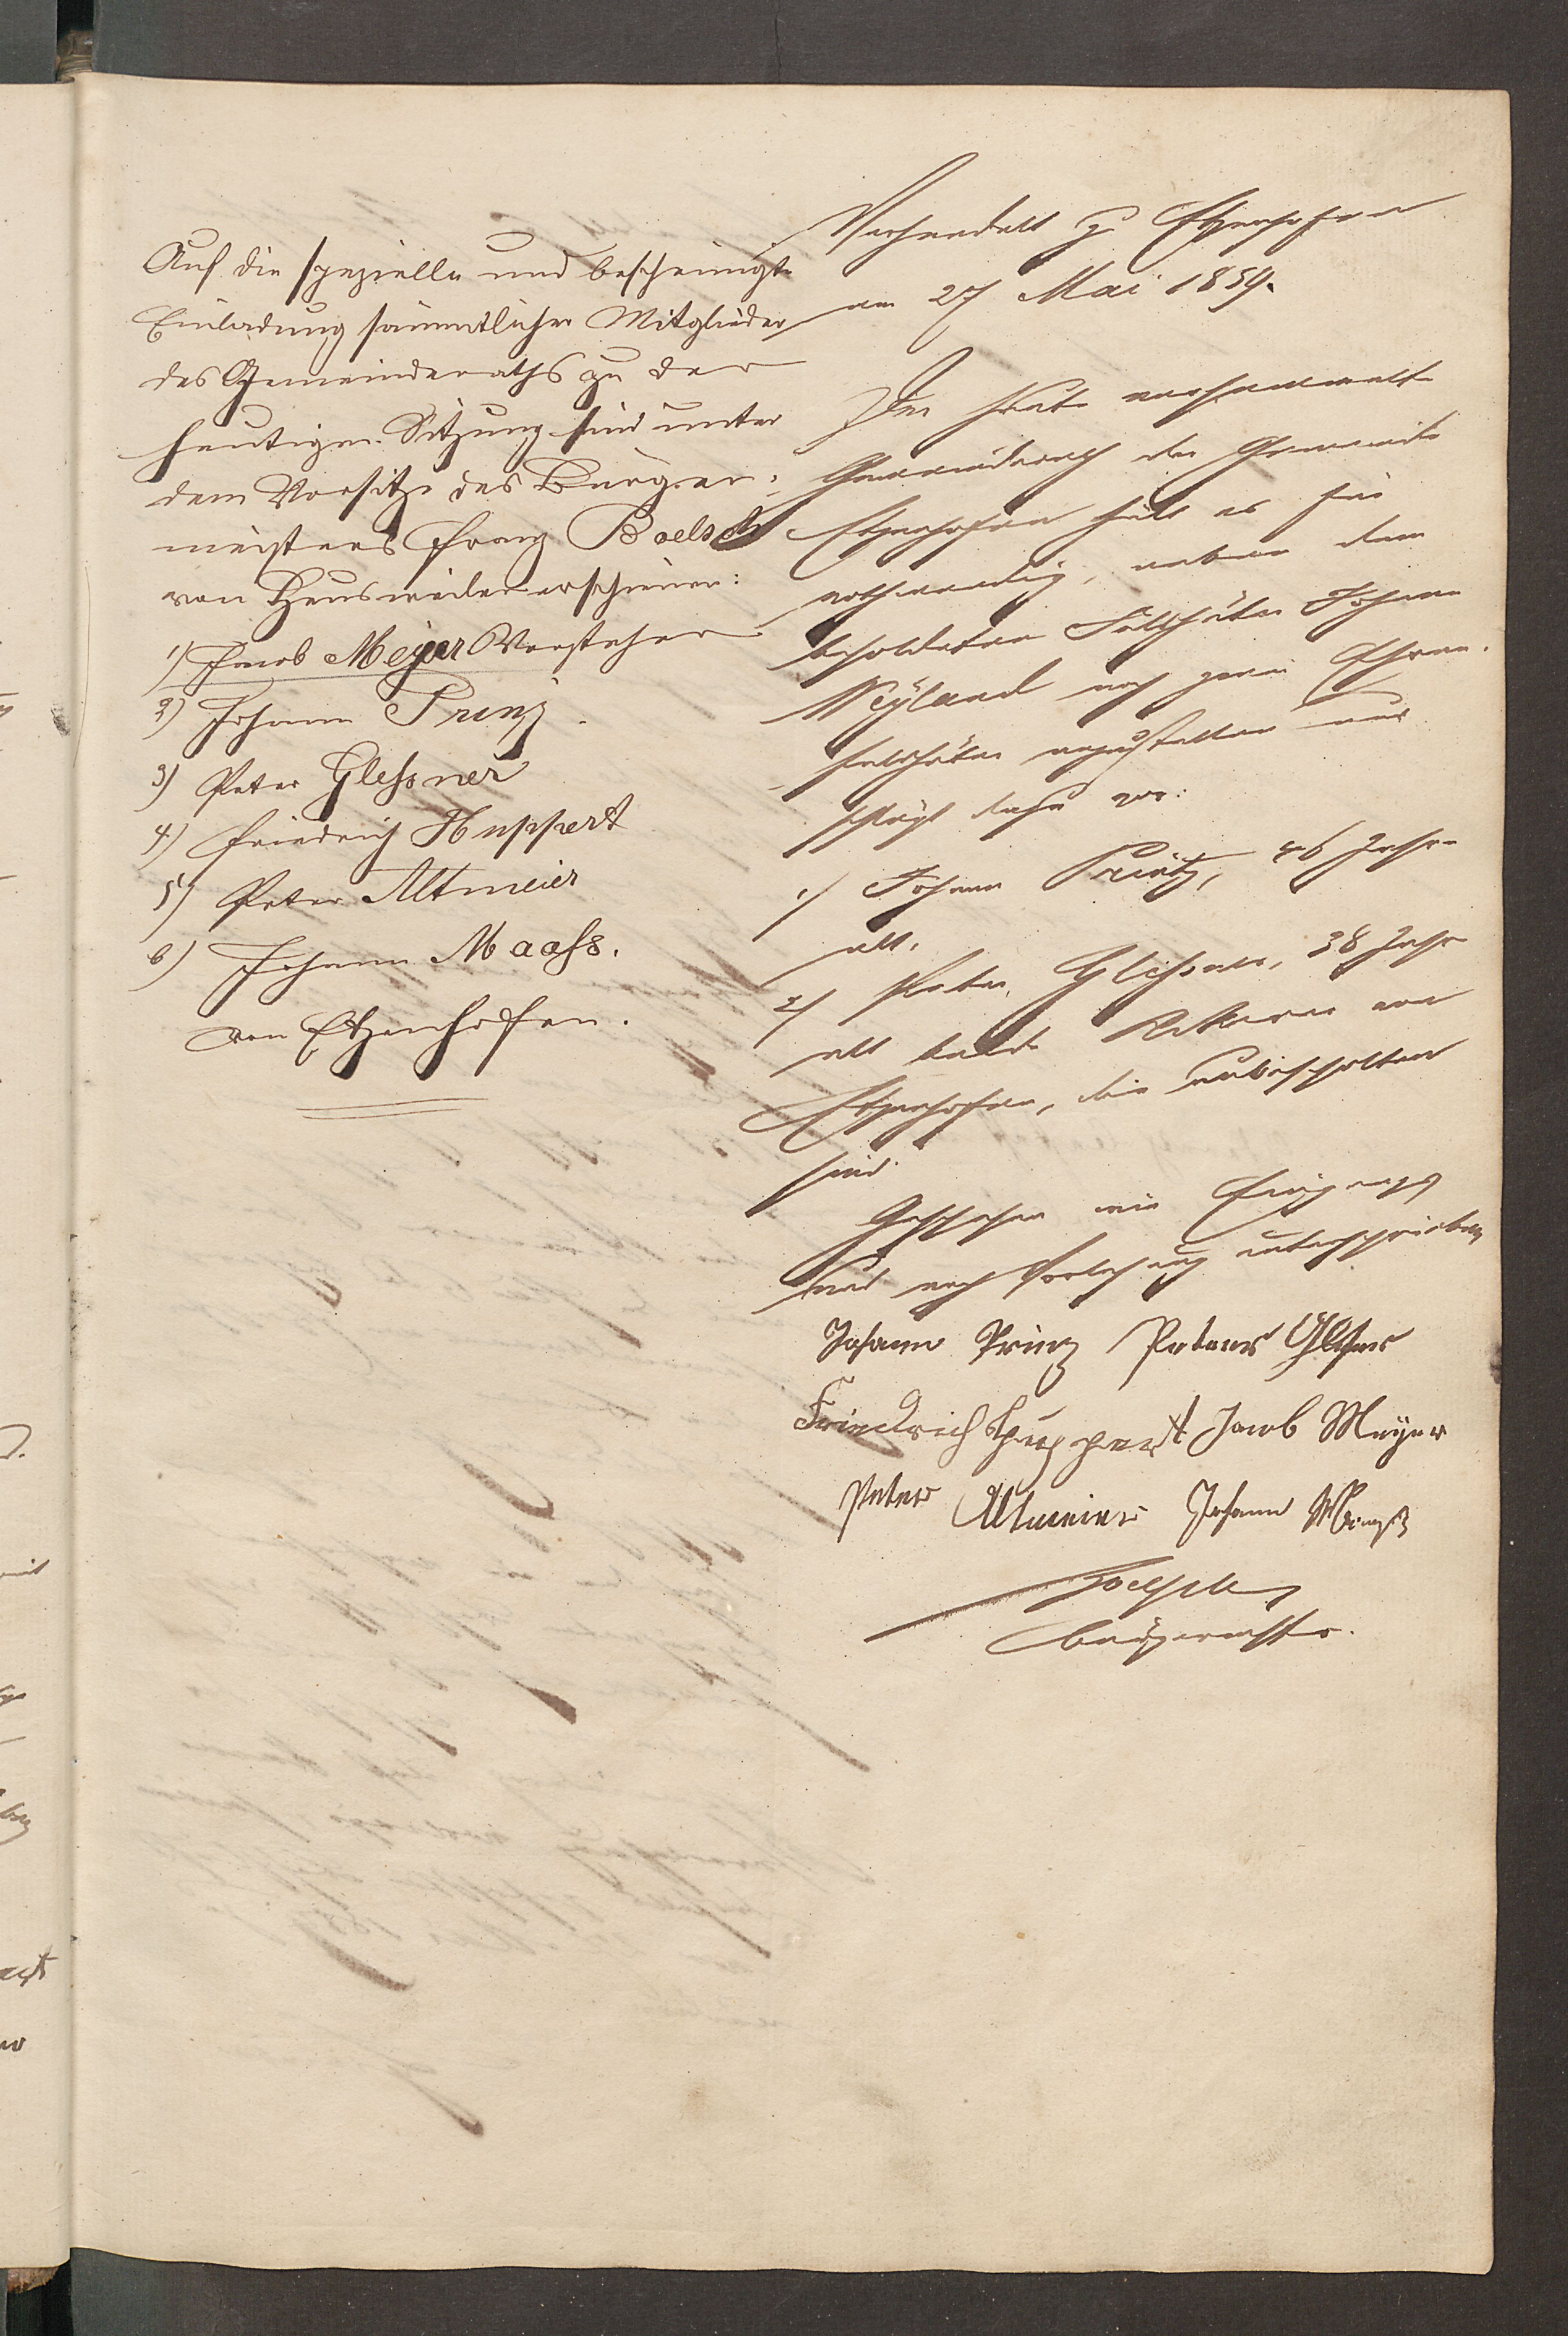 Auf die spezielle und bescheinigte
Einladung sämmtlicher Mitglieder
des Gemeinderaths zu der
heutigen Sitzung sind unter
dem Vorsitze des Bürger-
meisters Franz Boelsch
von Heusweiler erschienen:
1) Jacob Meyer Vorsteher
2) Johann Prinz.
3) Peter Glessner
4) Friedrich Huppert
5) Peter Altmeier
6) Johann Maass.
von Etzenhofen.
Verhandelt zu Etzenhofen
am 27 Mai 1859.
Der heute versammelte
Gemeinderath der Gemeinde
Etzenhofen hält es für
nothwendig, neben dem
besoldeten Feldhüter Johann
Weyland noch zwei Ehren-
feldhüter anzustellen und
schlägt dafür vor:
1) Johann Printz, 46 Jahre
alt.
2) Peter Glessner, 38 Jahre
alt beide Ackerer von
Etzenhofen, die unbescholten
sind.
Geschehen wie Eingangs
und nach Vorlesung unterschrieben
Johann Prinz Peter Glesner
Friedrich Huppert Jacob Meyer
Peter Altmeier Johann Maaß
Boelsch
Bürgermstr.